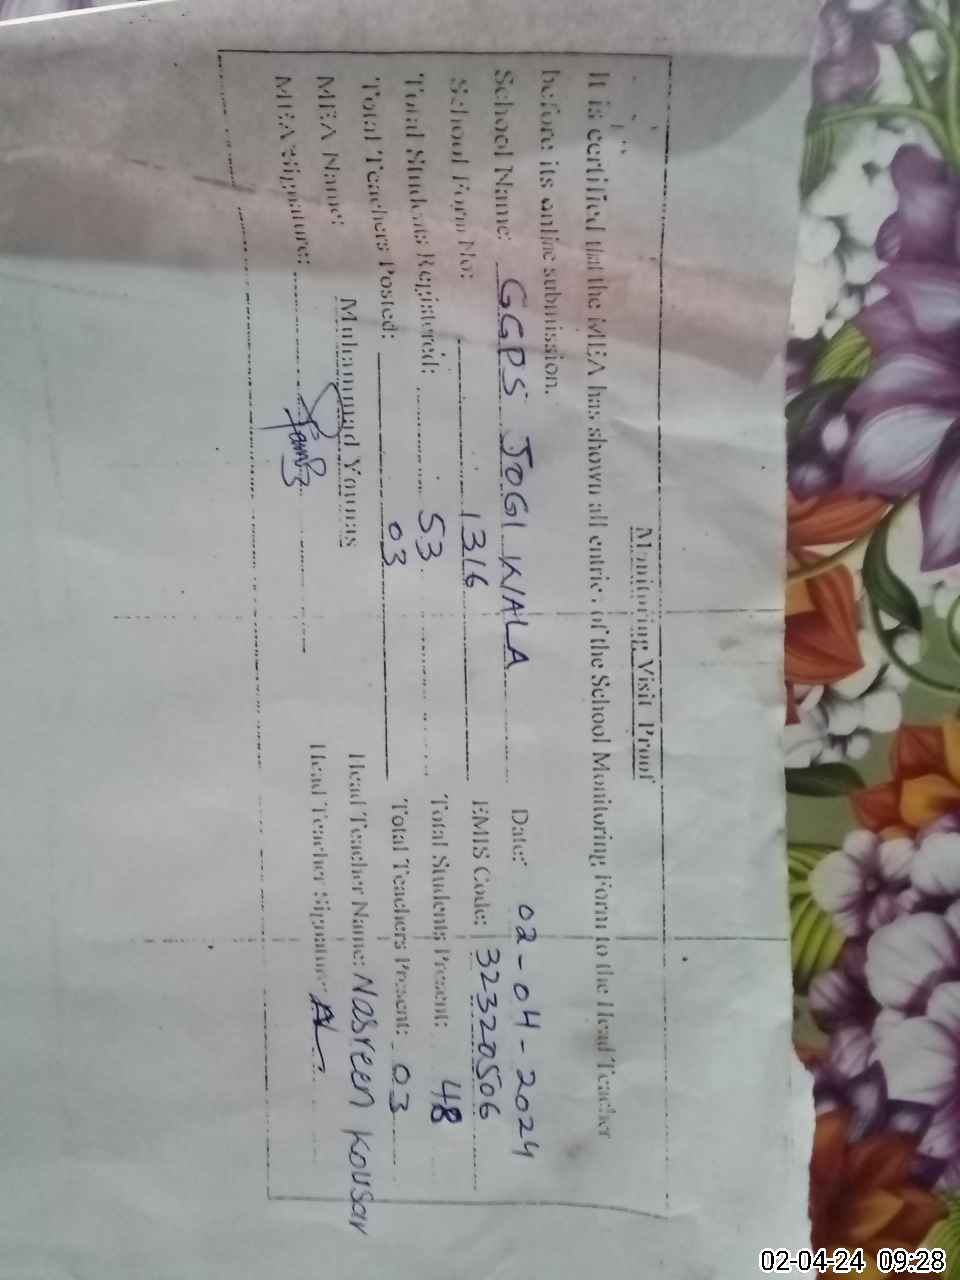 Monitoring Visit Proof
It is certified that the MEA has shown all entries of the School Monitoring Form to the Head Teacher
before its online submission.
Date: 02-04-2024
School Name: GGPS JOGI WALA
EMIS Code: 32320506
School Form No: 1316
Total Students Present: 48
Total Students Registered: 53
Total Teachers Present: 03
Total Teachers Posted: 03
Head Teacher Name: Nasreen Kousar
MEA Name: Muhammad Younas
Head Teacher Signature:
MEA Signature:
02-04-24 09:28